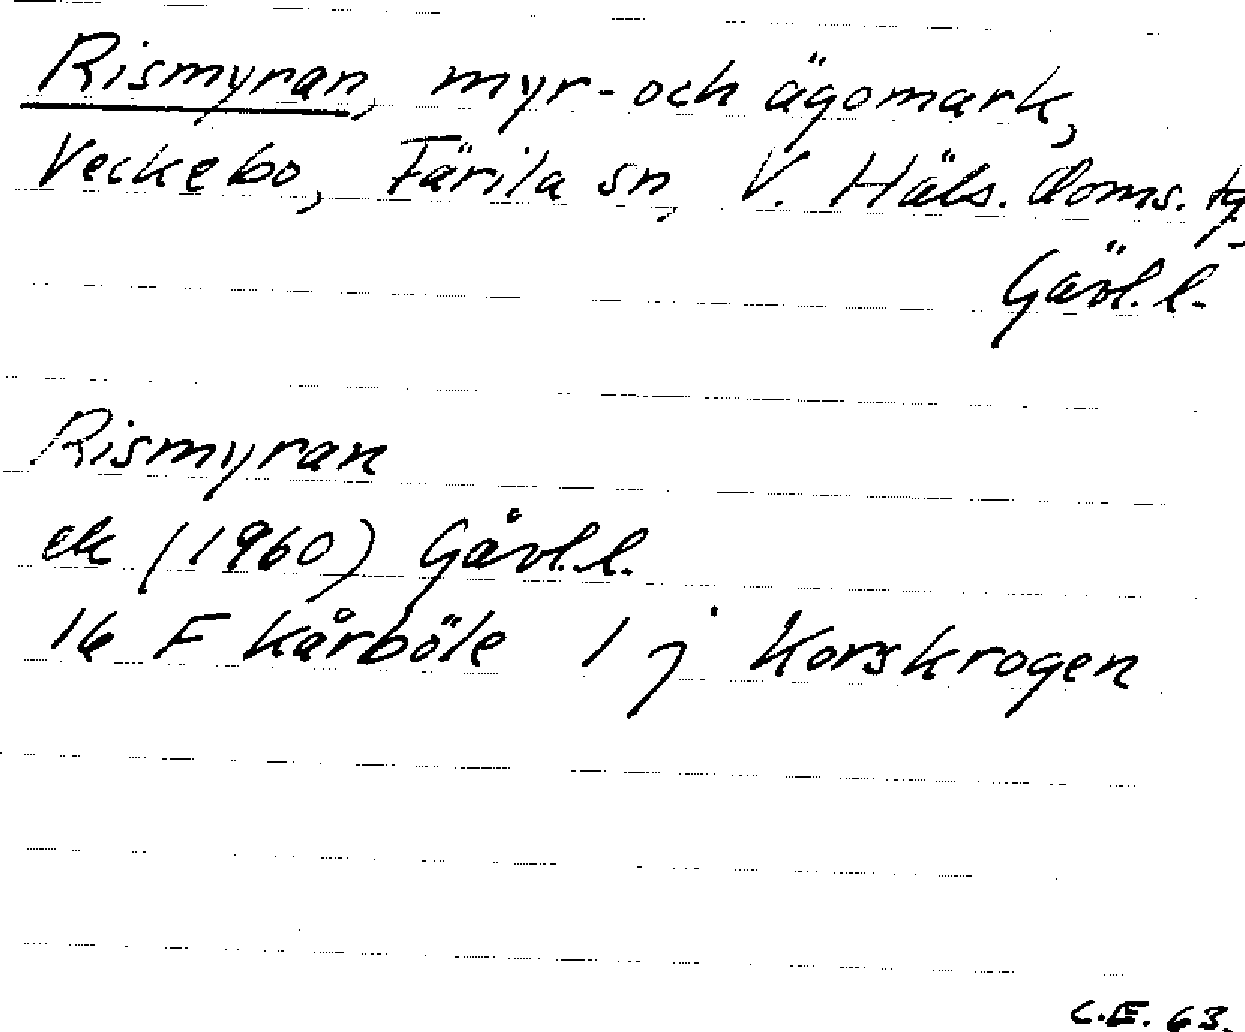 Rismyran, myr- och ägomark,
Veckebo, Färila sn, V. Häls. doms. tg
Gävl. l.
Rismyran
ek (1960) Gävl. l.
16 F Kårböle 1 j Korskrogen
C.E. 63.